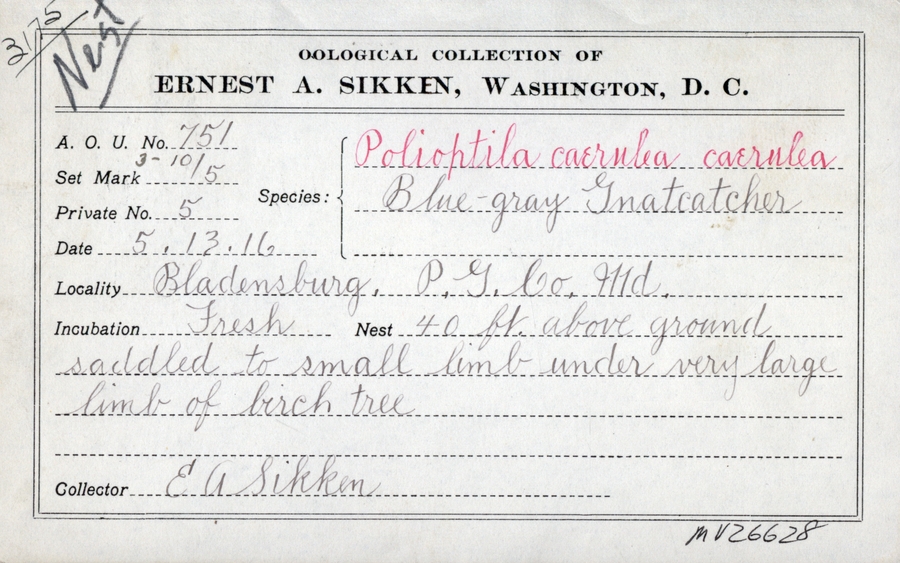 3175
Nest
OOLOGICAL COLLECTION OF
ERNEST A. SIKKEN, WASHINGTON, D. C.
A. O. U. No. 751
Set Mark 3-10/5
Private No. 5
Date 5.13.16
Species: Polioptila caerulea caerulea
Blue-gray Gnatcatcher
Locality Bladensburg, P. G. Co. Md.
Incubation Fresh Nest 40 ft. above ground
saddled to small limb under very large
limb of birch tree
Collector E A Sikken
MV26628